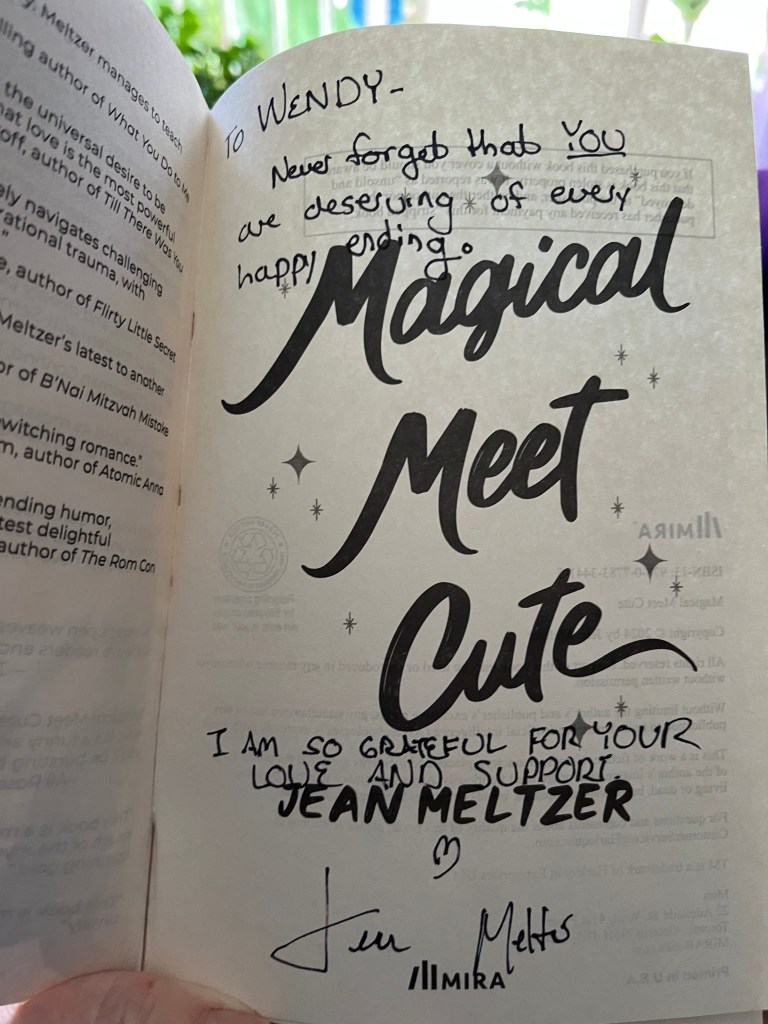 y. Meltzer manages to teach
lling author of What You Do to Me
the universal desire to be
hat love is the most powerful
off, author of Till There Was You
ely navigates challenging
rational trauma, with
"
e, author of Flirty Little Secret
Meltzer's latest to another
or of B'Nai Mitzvah Mistake
ewitching romance."
m, author of Atomic Anna
ending humor,
test delightful
author of The Rom Con
TO WENDY-
Never forget that YOU
are deserving of every
happy ending.
Magical
Meet
Cute
I AM SO GRATEFUL FOR YOUR
LOVE AND SUPPORT.
JEAN MELTZER
Jean Meltzer
MIRA